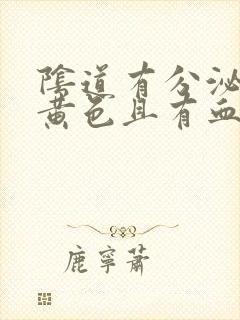 陰道有分泌
黃色且有血
鹿寧蕭